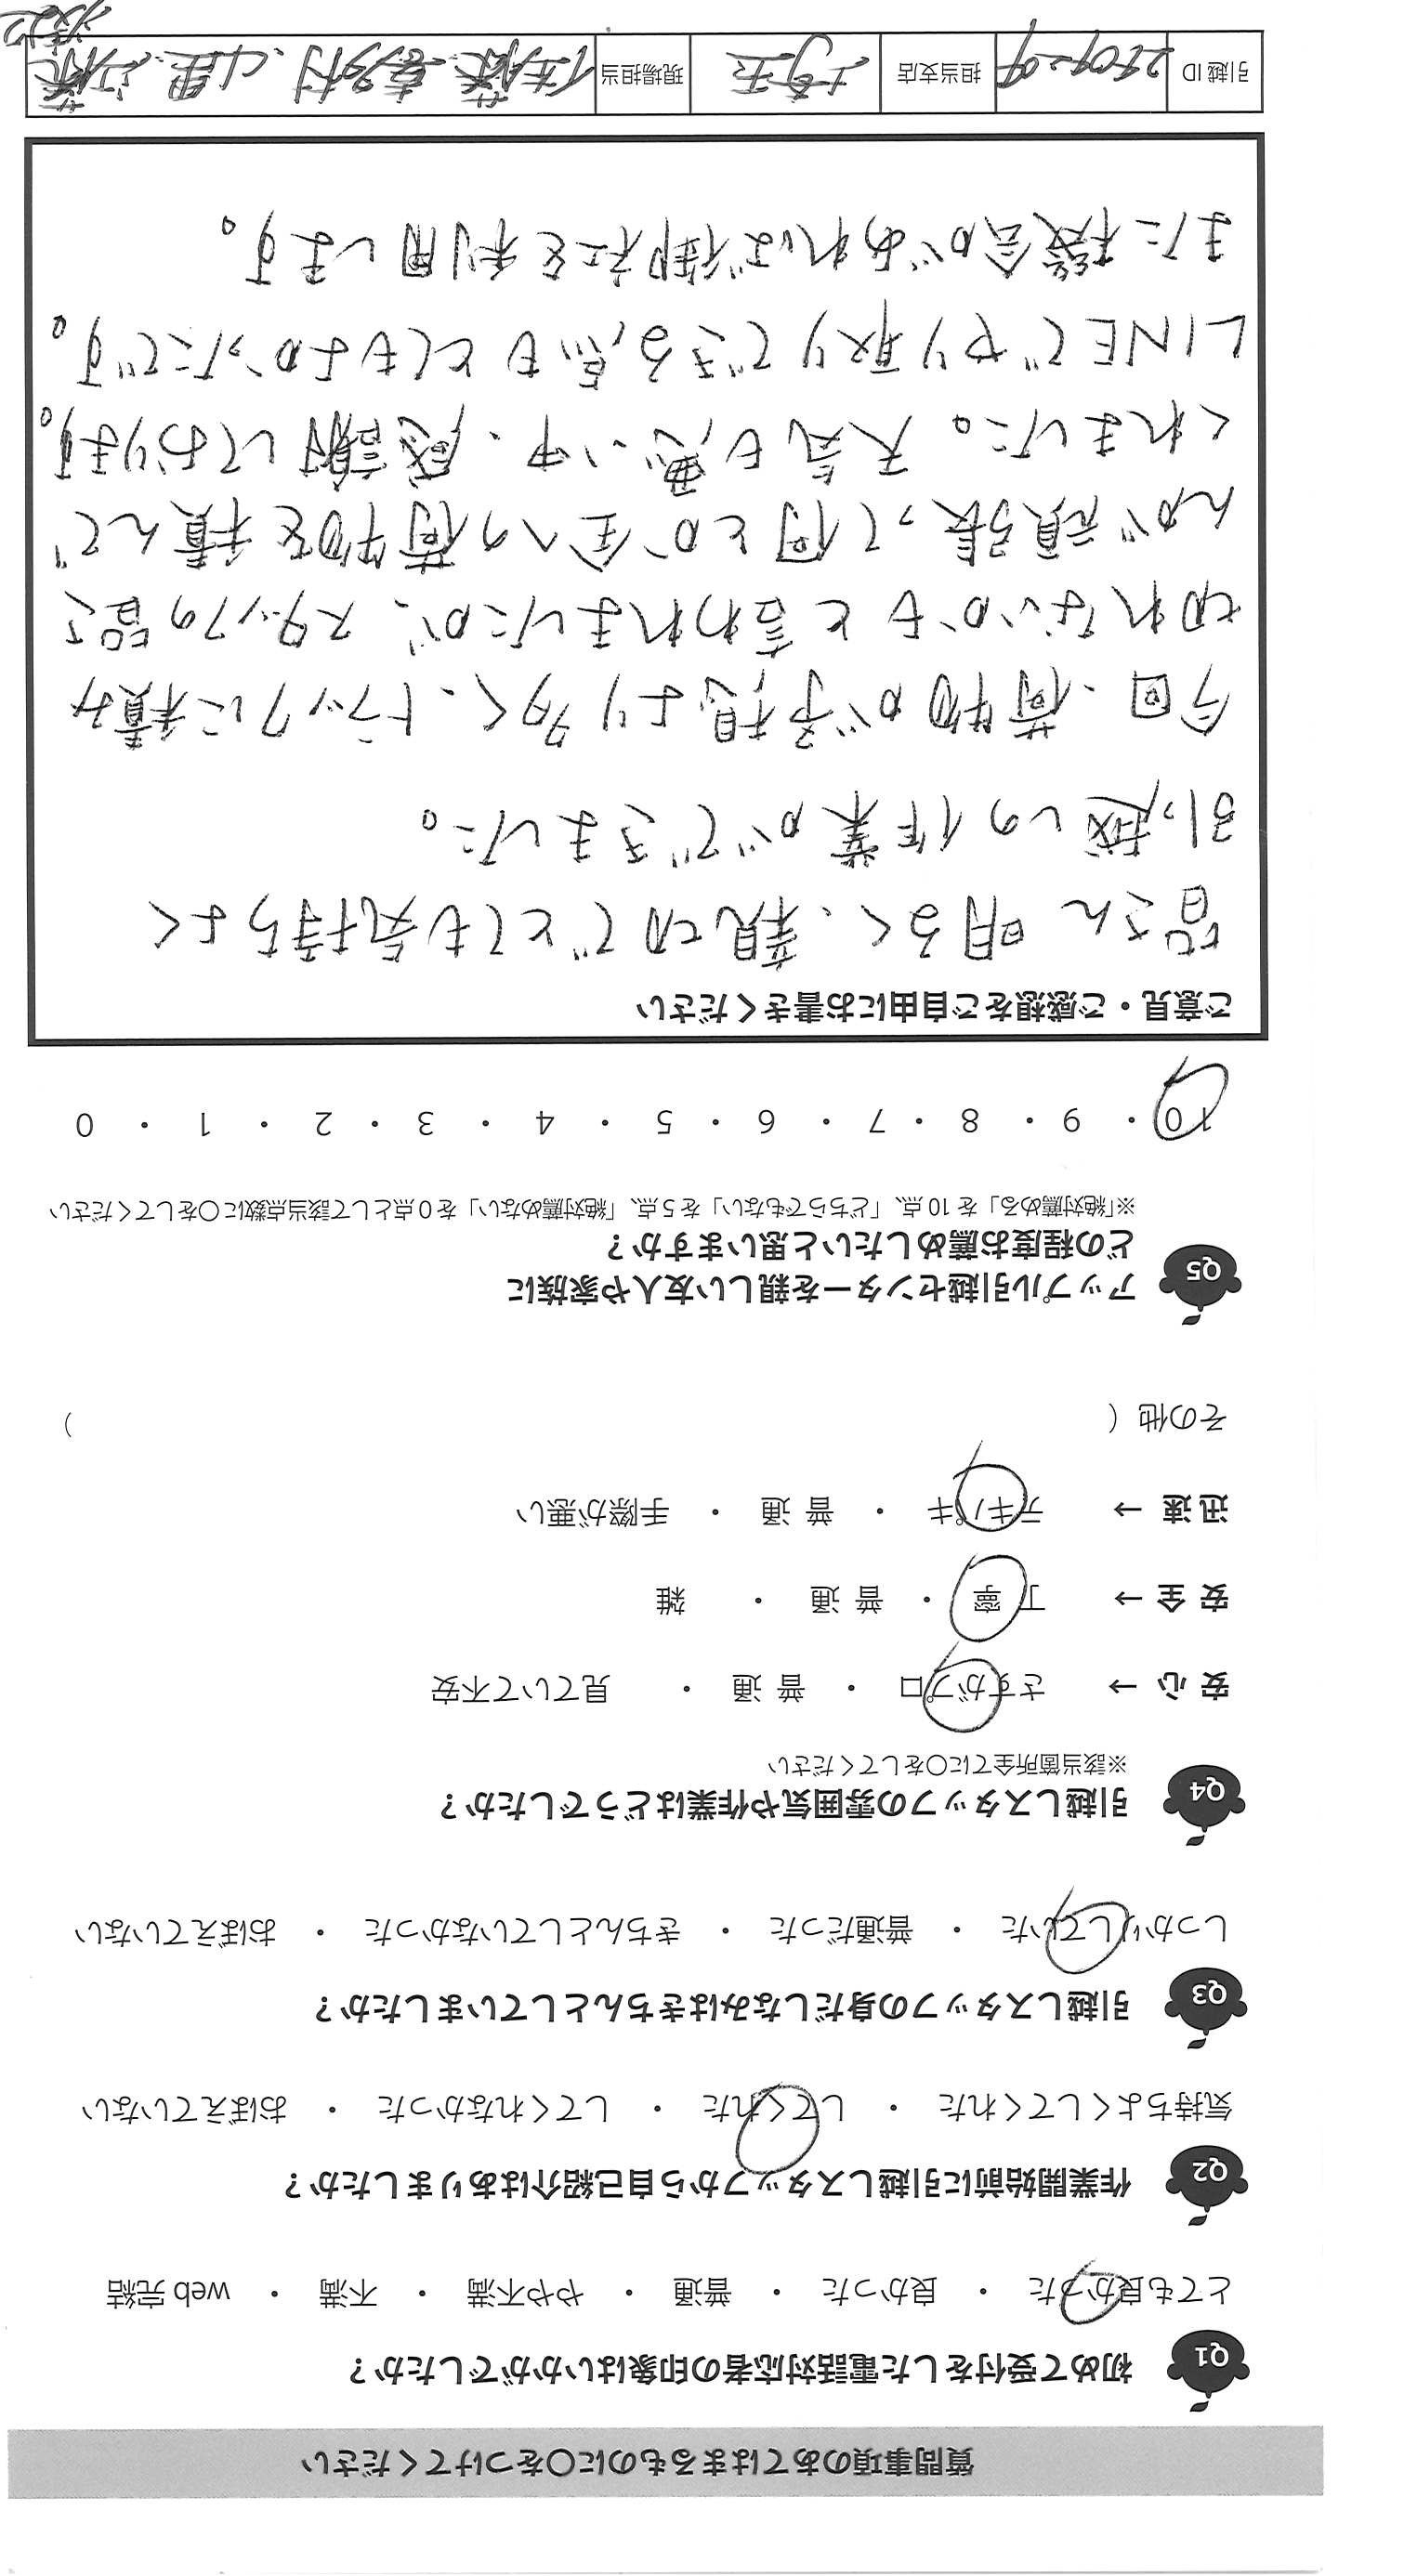 質問事項のあてはまるものに〇をつけてください
Q1 初めて受付をした電話対応者の印象はいかがでしたか？
とても良かった ・ 良かった ・ 普通 ・ やや不満 ・ 不満 ・ web 完結
Q2 作業開始前に引越しスタッフから自己紹介はありましたか？
気持ちよくしてくれた ・ してくれた ・ してくれなかった ・ おぼえていない
Q3 引越しスタッフの身だしなみはきちんとしていましたか？
しっかりしていた ・ 普通だった ・ きちんとしていなかった ・ おぼえていない
Q4 引越しスタッフの雰囲気や作業はどうでしたか？
※該当箇所全てに〇をしてください
安心 → さすがプロ ・ 普通 ・ 見ていて不安
安全 → 丁寧 ・ 普通 ・ 雑
迅速 → テキパキ ・ 普通 ・ 手際が悪い
その他（ ）
Q5 アップル引越センターを親しい友人や家族に
どの程度お薦めしたいと思いますか？
※「絶対薦める」を 10 点、「どちらでもない」を 5 点、「絶対薦めない」を 0 点として該当点数に〇をしてください
10 ・ 9 ・ 8 ・ 7 ・ 6 ・ 5 ・ 4 ・ 3 ・ 2 ・ 1 ・ 0
ご意見・ご感想をご自由にお書きください
皆さん明るく、親切でとても気持ちよく
引っ越しの作業ができました。
今回、荷物が予想より多く、トラックに積み
切れないかもと言われましたが、スタッフの皆さ
んが頑張って何とか全ての荷物を積んで
くれました。天気も悪い中、感謝しております。
LINEでやり取りできる点もとてもよかったです。
また機会があれば御社を利用します。
引越 ID 担当支店 埼玉 現場担当 佐藤、喜多村、